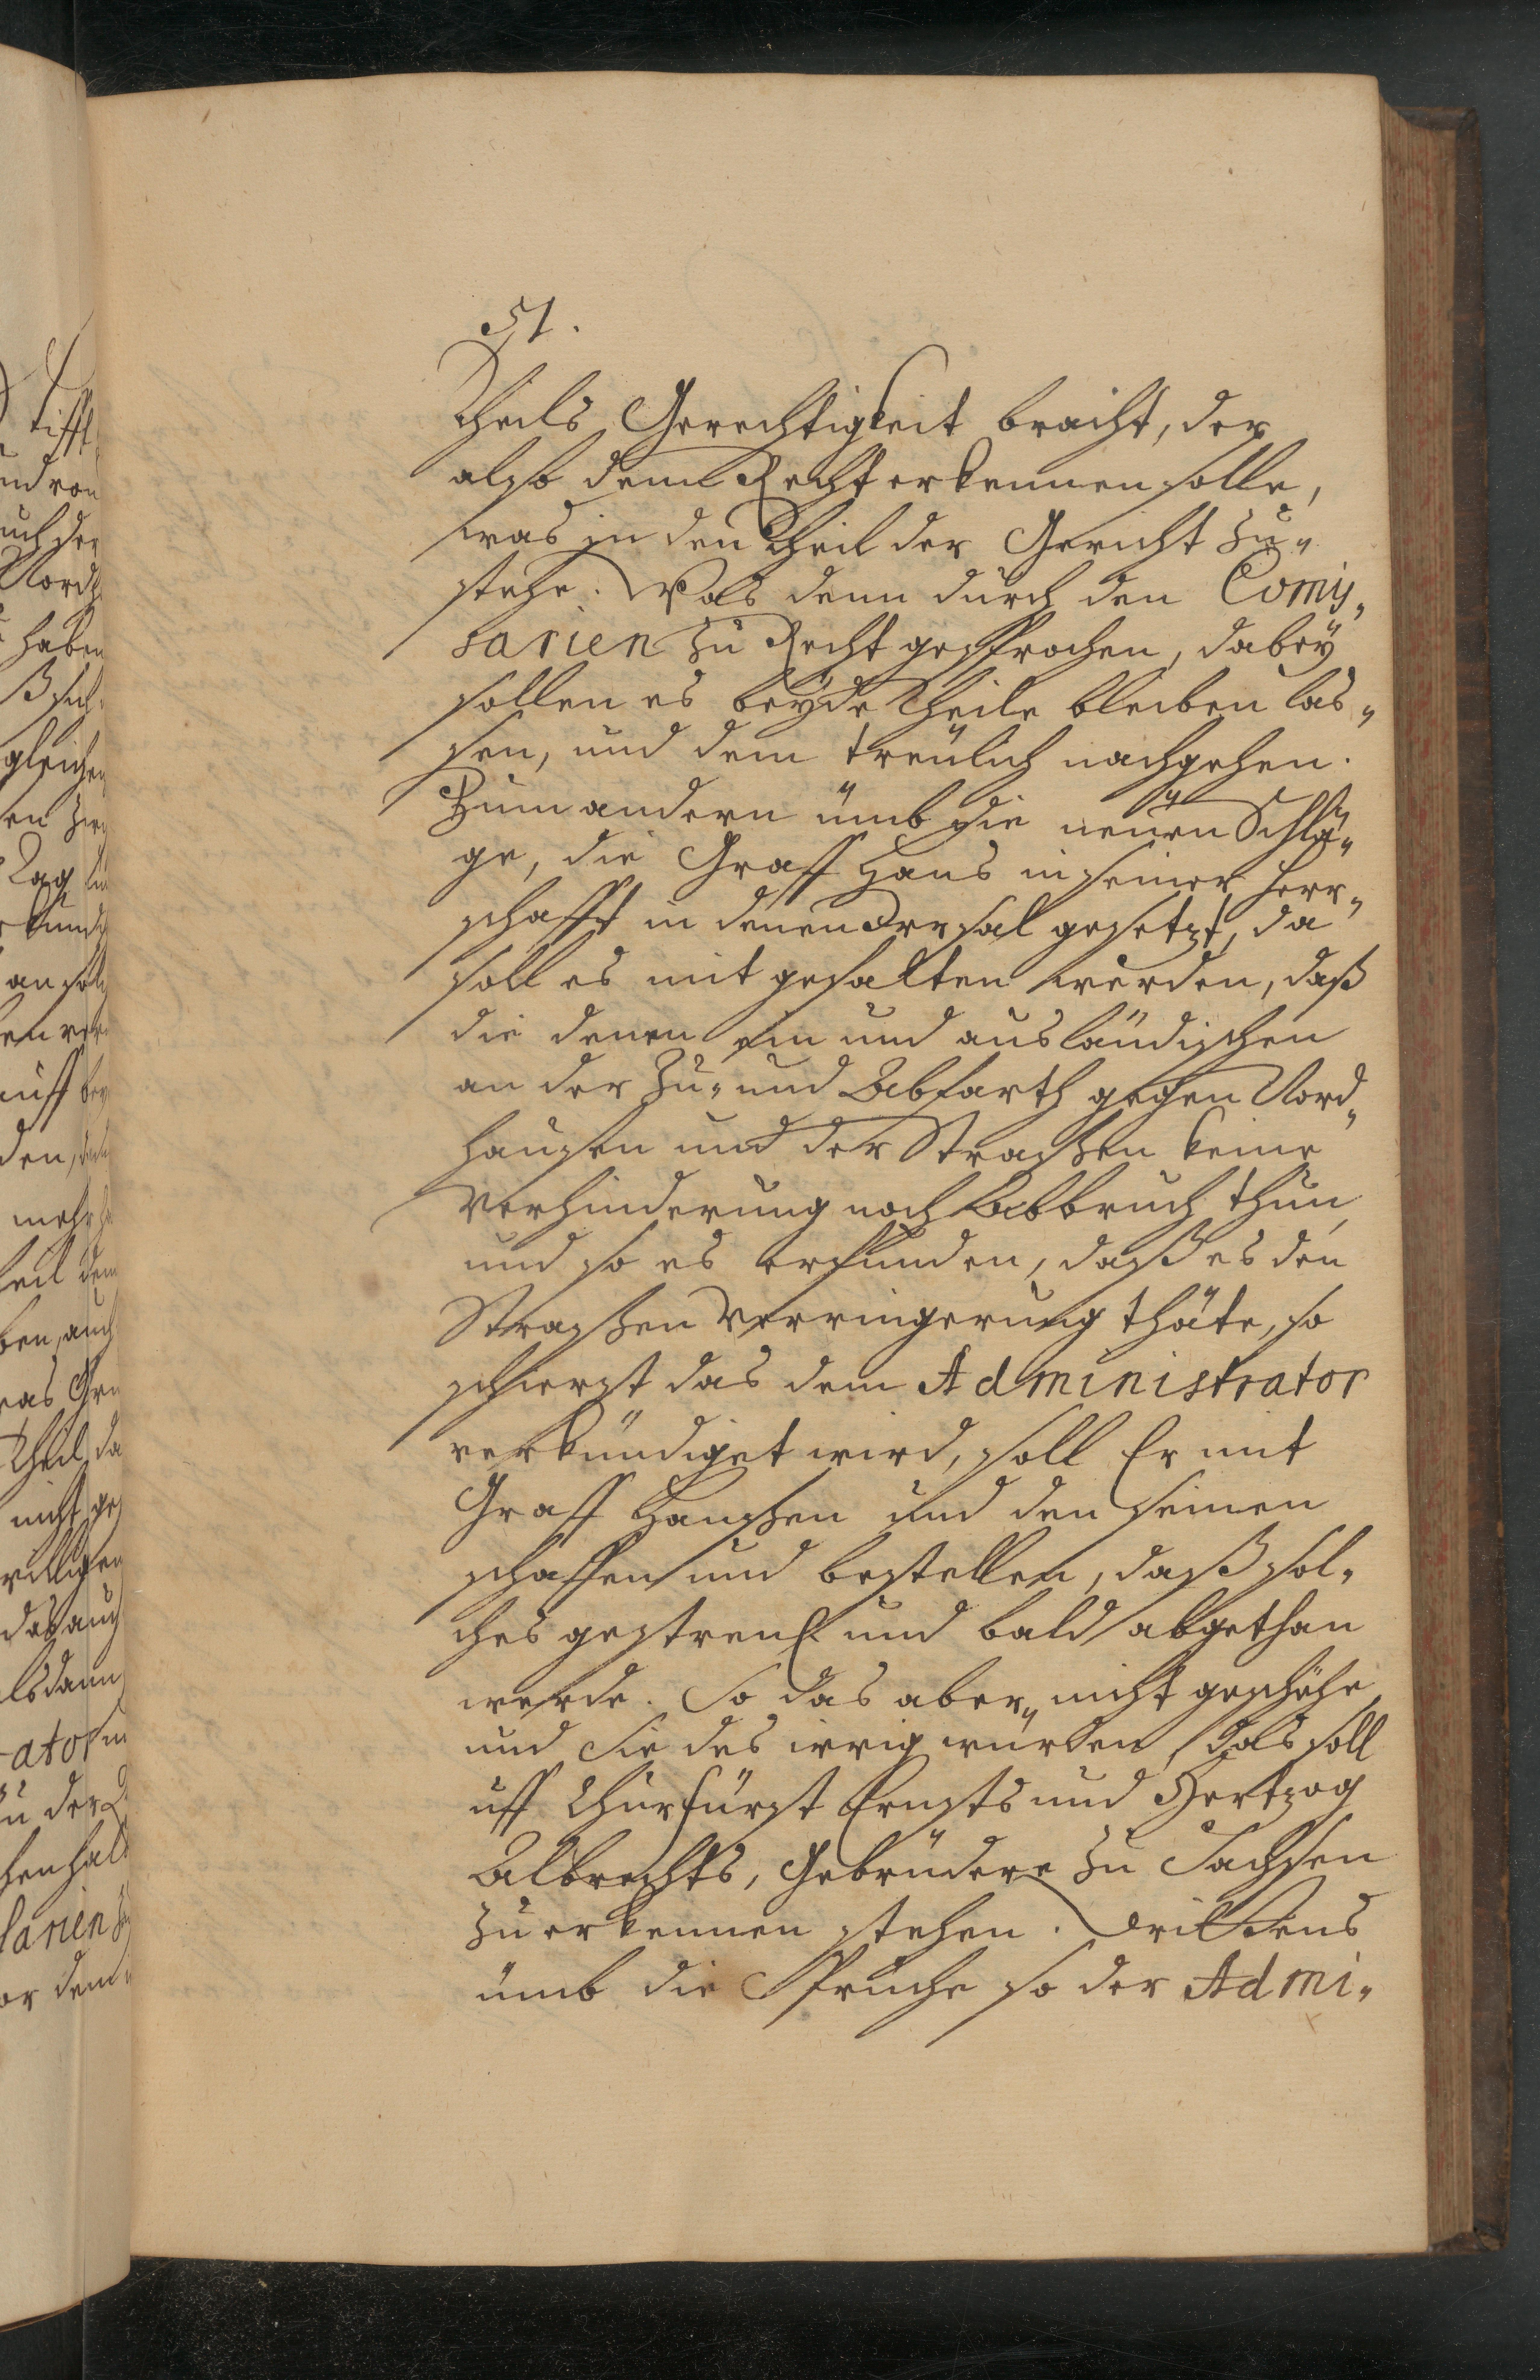 51.
Theils Gerechtigkeit bracht, der
also denn Recht erkennen solle,
was in den Theil der Gericht zu„
stehe. Was denn durch den Comis„
sarien zu Recht gesprochen, dabey
sollen es beyde Theile bleiben las„
sen, und dem treulich nachgehen.
Zum andern ümb die neuen Schlä„
ge, die Graff Hans in seiner Herr„
schafft in denen gesetzt, da
soll es mit gehalten werden, daß
die denen ein und ausländischen
an der Zu„ und Abfarth gegen Nord„
hausen und der Strassen keine
Verhinderung noch Abbruch thun
und so es erfunden, daß es den
Strassen Verringerung thäte, so
schierst das dem Administrator
verkündiget wird, soll Er mit
Graff Hanssen und den seinen
schaffen und bestellen, daß sol„
ches und bald abgethan
werde. So das aber nicht geschehe,
und Sie des irrig würden, das soll
uff Churfürst Ernsts und Hertzog
Albrechts, Gebrüdere zu Sachsen
zu erkennen stehen. Drittens
ümb die Sprüche so der Admi„